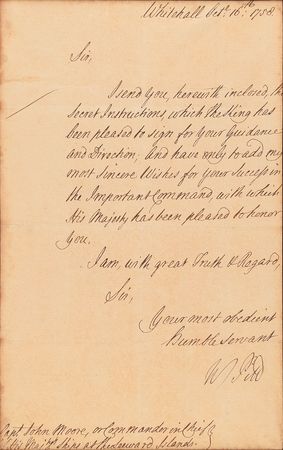 Whitehall Octr. 16th. 1758
Sir,
I send You, herewith inclosed, the
Secret Instructions, which The King has
been pleased to sign for Your Guidance
and Direction; And have only to add my
most Sincere Wishes for Your Success in
the Important Command, with which
His Majesty has been pleased to honor
You.
I am, with great Truth & Regard,
Sir,
Your most obedient
humble Servant
W Pitt
Capt. John Moore, or Commander in Chief
His Majty's Ships at the Leeward Islands.